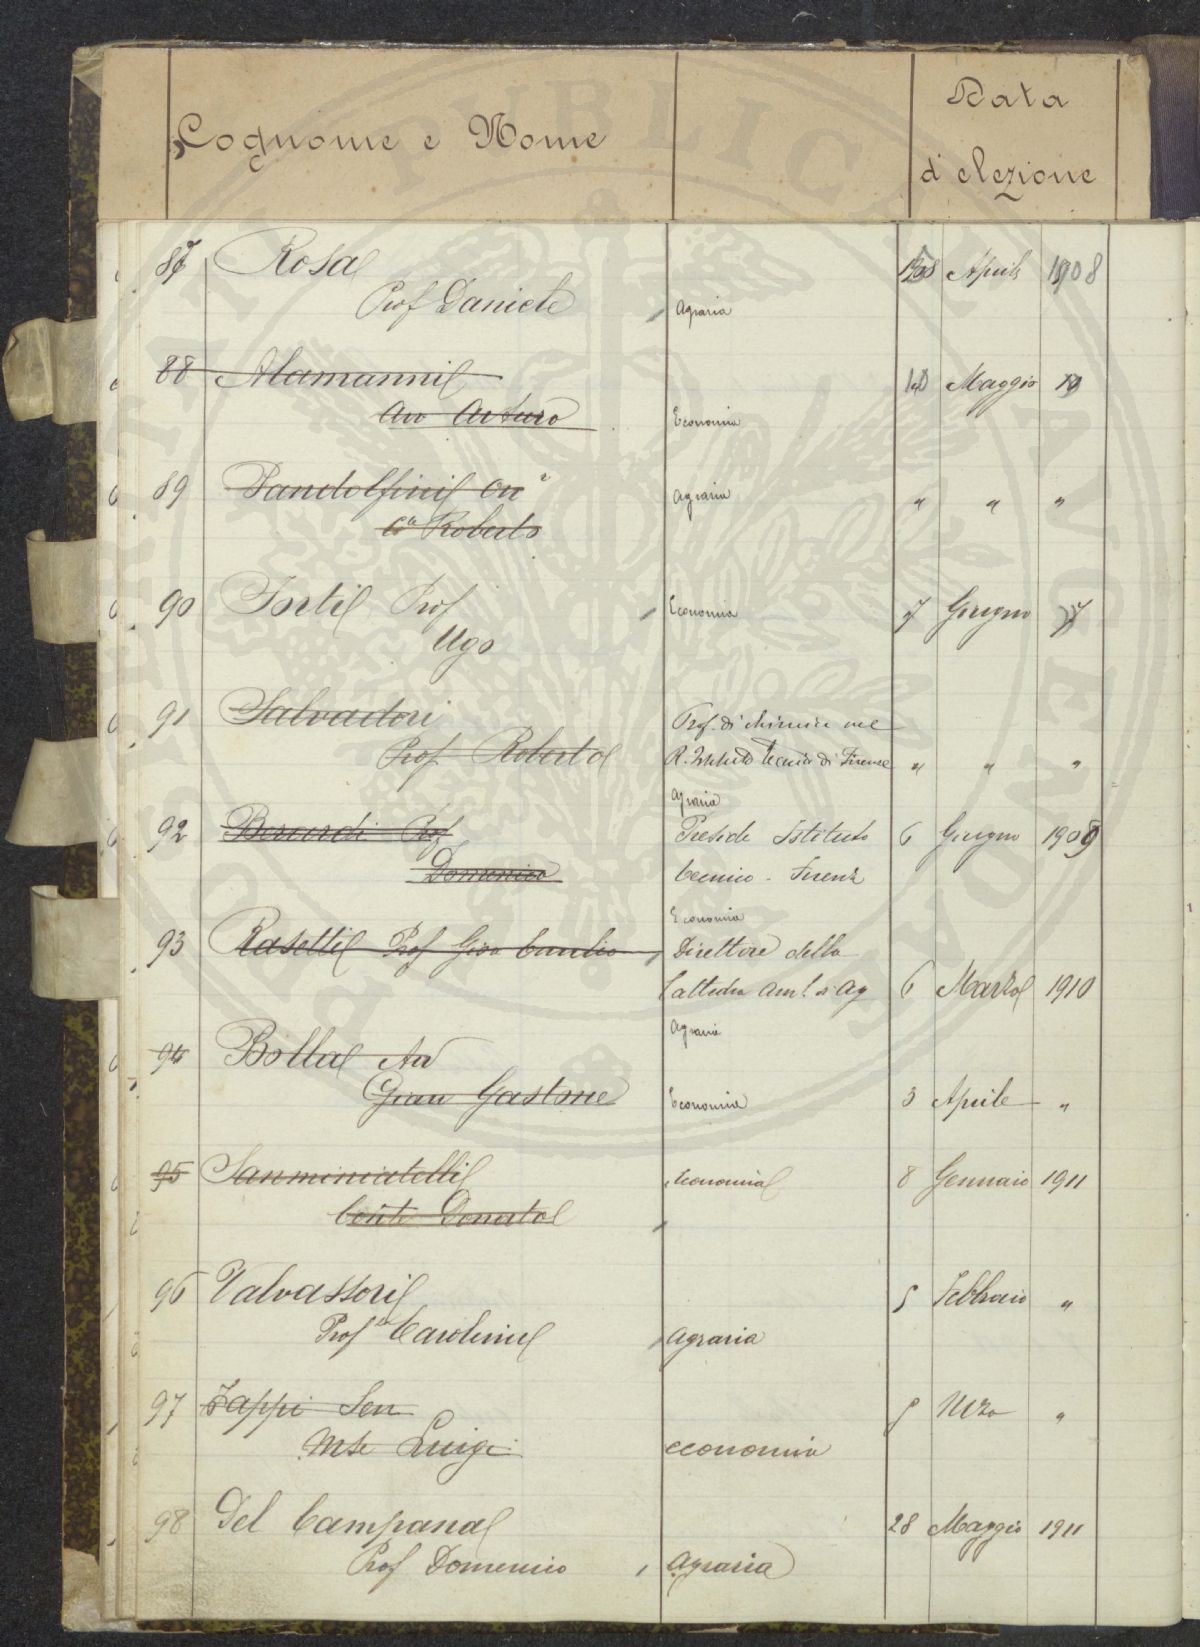 Cognome e Nome
Data
d'elezione
87 Rosa Aprile 1908
Prof Daniele Agraria
88 Alamanni 10 Maggio
Avv Arturo Economia
89 Pandolfini On Agraria " " "
Cte Roberto
90 Forti Prof Economia 7 Giugno "
Ugo
91 Salvadori Prof. di chimica nel
Prof. Roberto R. Istituto Tecnico di Firenze " " "
Agraria
92 Berardi Prof Preside Istituto 6 Giugno 1909
Domenico tecnico - Firenze
Economia
93 Rasetti Prof Direttore della
Cattedra Amb. di Ag 6 Marzo 1910
Agraria
94 Bolla Avv
Gian Gastone Economia 3 Aprile "
95 Sanminiatelli Economia 8 Gennaio 1911
Conte Donato
96 Valvassori 5 Febbraio "
Prof Carolina Agraria
97 Zappi Sen 5 Mzo "
Mse Luigi economia
98 Del Campana 28 Maggio 1911
Prof Domenico Agraria